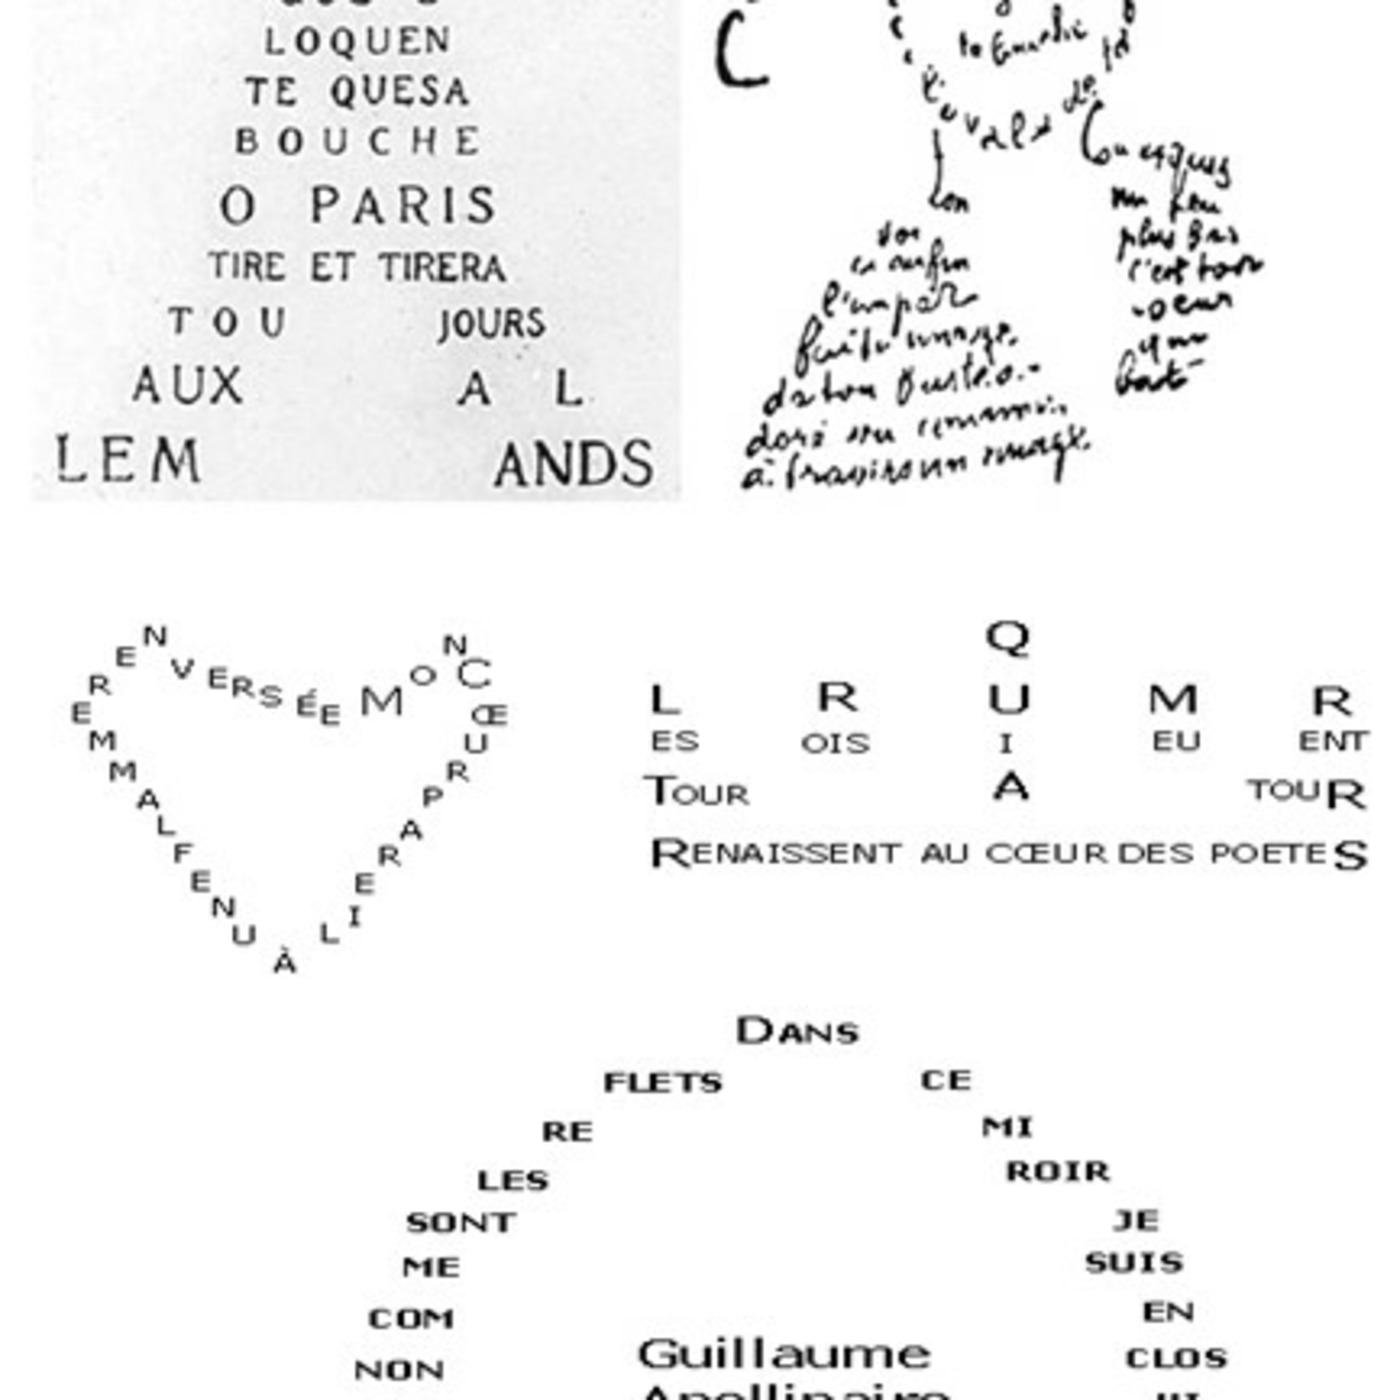 LOQUEN
TE QUESA
BOUCHE
O PARIS
TIRE ET TIRERA
TOU JOURS
AUX A L
LEM ANDS
C
l'ovale de
Cou exquis
un peu
plus bas
c'est ton
coeur
qui
bat
voi
ci enfin
l'impar
faite image
de ton buste a
doré vu comme
à travers un nuage
MON CŒUR PAREIL À UNE FLAMME RENVERSÉE
Q
L R U M R
ES OIS I EU ENT
TOUR A TOUR
RENAISSENT AU CŒUR DES POETES
DANS
CE
MI
ROIR
JE
SUIS
EN
CLOS
NON
COM
ME
SONT
LES
RE
FLETS
Guillaume
Apollinaire